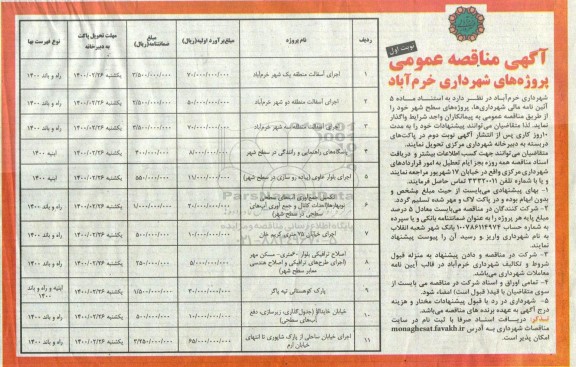 نوبت اول
آگهی مناقصه عمومی
پروژه‌های شهرداری خرم‌آباد
شهرداری خرم‌آباد در نظر دارد به استناد ماده ۵
آئین نامه مالی شهرداری‌ها، پروژه‌های سطح شهر خود را
از طریق مناقصه عمومی به پیمانکاران واجد شرایط واگذار
نماید. لذا متقاضیان می‌توانند پیشنهادات خود را به مدت
۱۰روز کاری پس از انتشار آگهی نوبت دوم در پاکت‌های
دربسته به دبیرخانه شهرداری مرکزی تحویل نمایند.
متقاضیان می‌توانند جهت کسب اطلاعات بیشتر و دریافت
اسناد مناقصه همه روزه بجز ایام تعطیل به امور قراردادهای
شهرداری مرکزی واقع در خیابان ۱۷ شهریور مراجعه نمایند
و یا با شماره تلفن ۳۳۳۲۰۰۱۱ تماس حاصل فرمایند.
۱- بهای پیشنهادی می‌بایست از حیث مبلغ مشخص و
بدون ابهام بوده و در پاکت لاک و مهر شده تسلیم گردد.
۲- شرکت کنندگان در مناقصه می‌بایست معادل ۵ درصد
مبلغ پایه هر پروژه را به عنوان ضمانتنامه بانکی و یا سپرده
به شماره حساب ۱۰۰۷۸۶۱۱۴۹۷۴ بانک شهر شعبه انقلاب
به نام شهرداری واریز و رسید آن را پیوست پیشنهاد
نمایند.
۳- شرکت در مناقصه و دادن پیشنهاد به منزله قبول
شروط و تکالیف شهرداری خرم‌آباد در قالب آیین نامه
معاملات شهرداری می‌باشد.
۴- تمامی اوراق و اسناد شرکت در مناقصه می بایست از
سوی متقاضیان با قید( قبول است) امضاء شود.
۵- شهرداری در رد یا قبول پیشنهادات مختار و هزینه
درج آگهی به عهده برنده های مناقصه می‌باشد.
تذکر: دریافت اسناد صرفا با ثبت نام در سایت
مناقصات شهرداری به آدرس monaghesat.favakh.ir
امکان پذیر است.
ردیف نام پروژه مبلغ برآورد اولیه(ریال) مبلغ ضمانتنامه(ریال) مهلت تحویل پاکت به دبیرخانه نوع فهرست بها
۱ اجرای آسفالت منطقه یک شهر خرم‌آباد ۷۰/۰۰۰/۰۰۰/۰۰۰ ۳/۵۰۰/۰۰۰/۰۰۰ یکشنبه ۱۴۰۰/۰۲/۲۶ راه و باند ۱۴۰۰
۲ اجرای آسفالت منطقه دو شهر خرم‌آباد ۵۰/۰۰۰/۰۰۰/۰۰۰ ۲/۵۰۰/۰۰۰/۰۰۰ یکشنبه ۱۴۰۰/۰۲/۲۶ راه و باند ۱۴۰۰
۳ اجرای آسفالت منطقه سه شهر خرم‌آباد ۷۰/۰۰۰/۰۰۰/۰۰۰ ۳/۵۰۰/۰۰۰/۰۰۰ یکشنبه ۱۴۰۰/۰۲/۲۶ راه و باند ۱۴۰۰
۴ ایستگاههای راهنمایی و رانندگی در سطح شهر ۸/۰۰۰/۰۰۰/۰۰۰ ۴۰۰/۰۰۰/۰۰۰ یکشنبه ۱۴۰۰/۰۲/۲۶ ابنیه ۱۴۰۰
۵ اجرای بلوار علوی (پیاده رو سازی در سطح شهر) ۱۱/۰۰۰/۰۰۰/۰۰۰ ۵۵۰/۰۰۰/۰۰۰ یکشنبه ۱۴۰۰/۰۲/۲۶ ابنیه ۱۴۰۰
۶ سطحی در سطح شهر) ۲۰/۰۰۰/۰۰۰/۰۰۰ ۱/۰۰۰/۰۰۰/۰۰۰ یکشنبه ۱۴۰۰/۰۲/۲۶ راه و باند ۱۴۰۰
۷ اجرای خیابان ۷۵ متری کریم خان ۱۰/۰۰۰/۰۰۰/۰۰۰ ۵۰۰/۰۰۰/۰۰۰ یکشنبه ۱۴۰۰/۰۲/۲۶ راه و باند ۱۴۰۰
۸ اصلاح ترافیکی بلوار ۶۰متری- مسکن مهر (اجرای طرح‌های ترافیکی و اصلاح هندسی معابر سطح شهر) ۵/۰۰۰/۰۰۰/۰۰۰ ۲۵۰/۰۰۰/۰۰۰ یکشنبه ۱۴۰۰/۰۲/۲۶ راه و باند ۱۴۰۰
۹ پارک کوهستانی تپه پاگر ۳۰/۰۰۰/۰۰۰/۰۰۰ ۱/۵۰۰/۰۰۰/۰۰۰ یکشنبه ۱۴۰۰/۰۲/۲۶ ابنیه و راه و باند ۱۴۰۰
۱۰ خیابان (جدول‌گذاری، زیرسازی، دفع آب‌های سطحی) ۱۰/۰۰۰/۰۰۰/۰۰۰ ۵۰۰/۰۰۰/۰۰۰ یکشنبه ۱۴۰۰/۰۲/۲۶ راه و باند ۱۴۰۰
۱۱ اجرای خیابان ساحلی از پارک شاپوری تا انتهای خیابان ارم ۶۵/۰۰۰/۰۰۰/۰۰۰ ۳/۲۵۰/۰۰۰/۰۰۰ یکشنبه ۱۴۰۰/۰۲/۲۶ راه و باند ۱۴۰۰